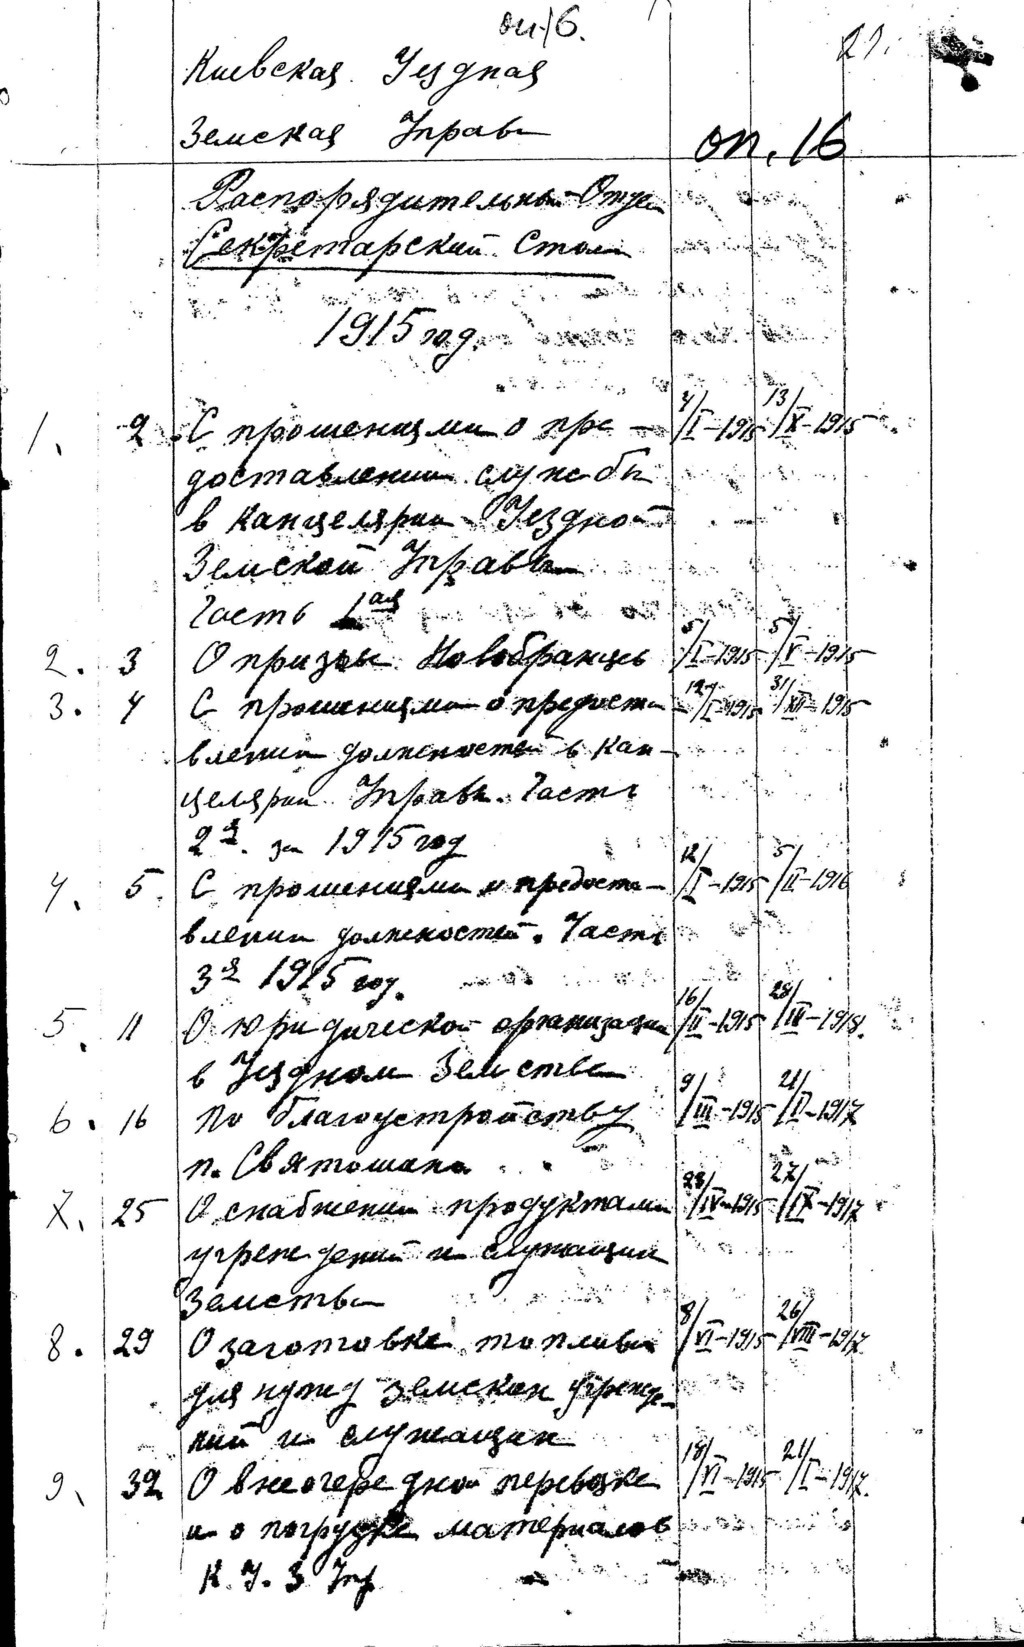 оп 16.
21.
Киевская Уездная
Земская Управа
оп. 16
Распорядительный Отдел
Секретарский Стол
1915 год.
1. 2 С прошениями о пре- 4/I-1915 13/X-1915
доставлении службы
в канцелярии Уездной
Земской Управы
Часть 1ая
2. 3 О призыве Новобранцев 5/I-1915 5/V-1915
3. 4 С прошениями о предоста- 12/I-1915 31/XII-1915
влении должностей в кан-
целярии Управы. Часть
2я. за 1915 год
4. 5. С прошениями о предоста- 12/I-1915 5/II-1916
влении должностей. Часть
3я 1915 год.
5. 11 О юридической организации 16/II-1915 28/III-1918.
в Уездном Земстве
6. 16 По благоустройству 9/III-1915 21/I-1917
п. Святошина
7. 25 О снабжении продуктами 23/IV-1915 27/IX-1917
учреждений и служащих
Земства
8. 29 О заготовке топлива 8/VI-1915 26/VIII-1917.
для нужд земских учрежде-
ний и служащих
9. 32 О внеочередной перевозке 18/VI-1915 21/I-1917.
и о погрузке материалов
К. У. З Упр